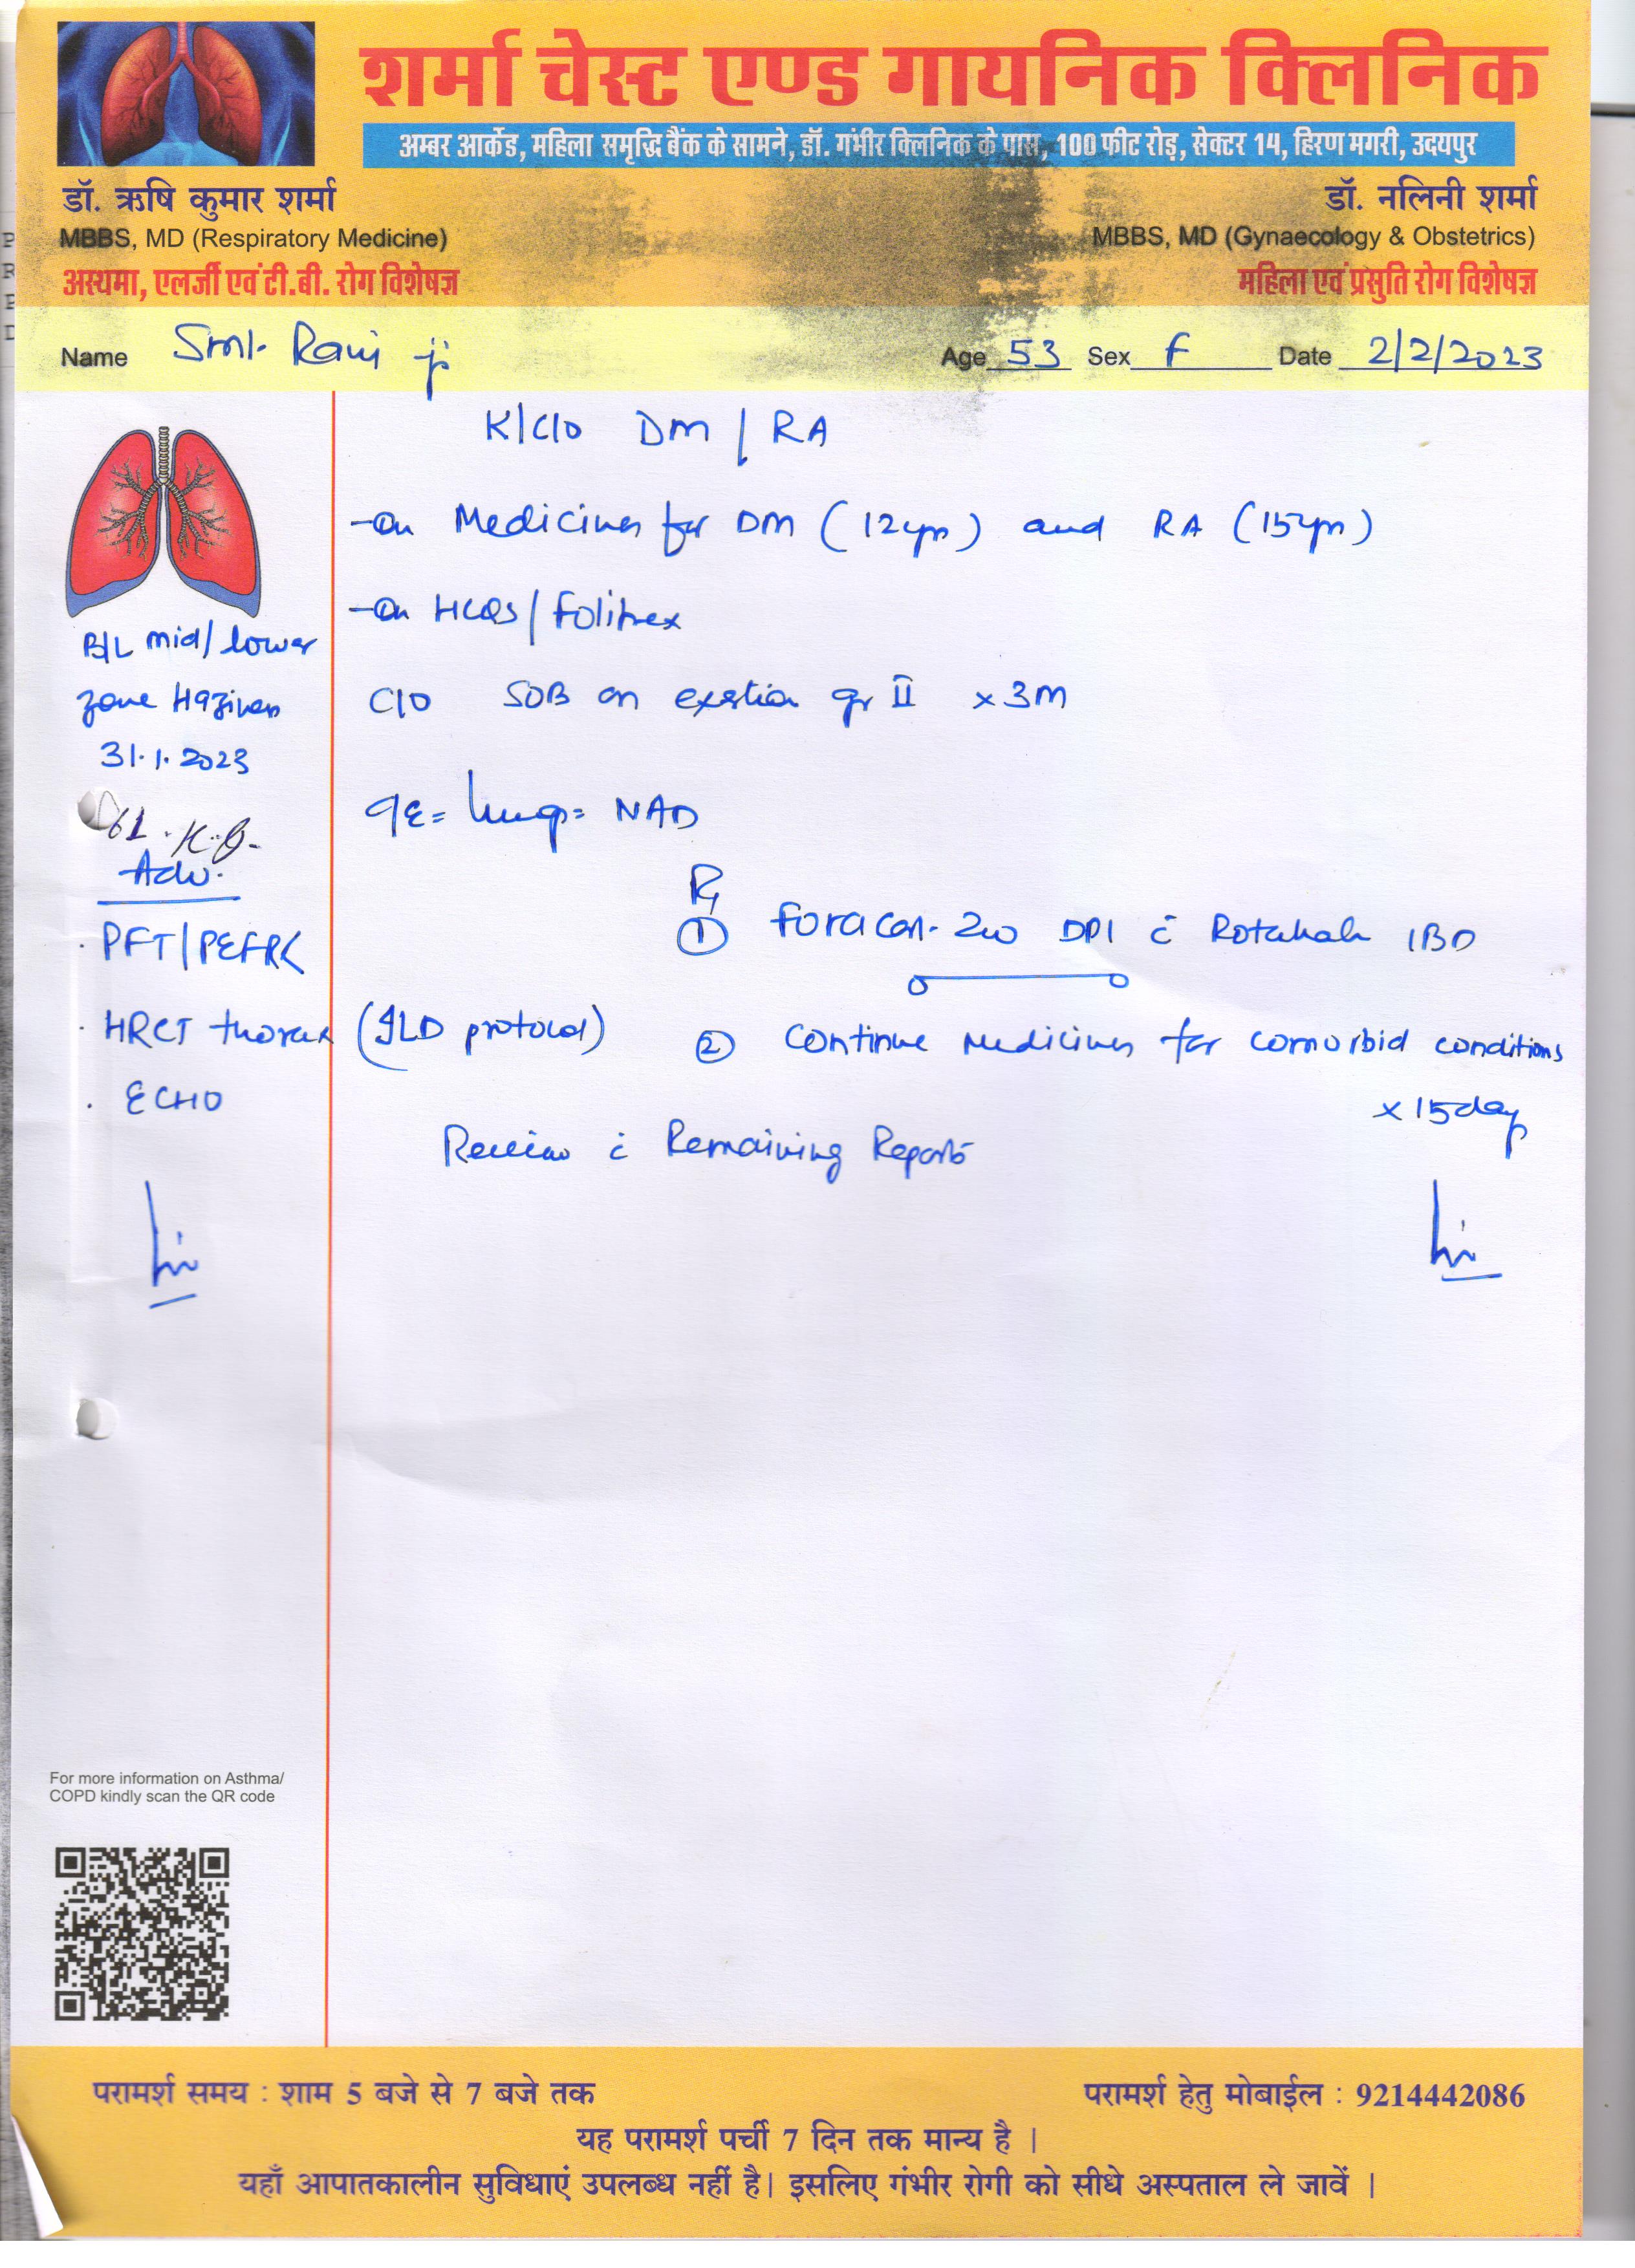 शर्मा चेस्ट एण्ड गायनिक क्लिनिक
अम्बर आर्केड, महिला समृद्धि बैंक के सामने, डॉ. गंभीर क्लिनिक के पास, 100 फीट रोड़, सेक्टर 14, हिरण मगरी, उदयपुर
डॉ. ऋषि कुमार शर्मा
MBBS, MD (Respiratory Medicine)
अस्थमा, एलर्जी एवं टी.बी. रोग विशेषज्ञ
डॉ. नलिनी शर्मा
MBBS, MD (Gynaecology & Obstetrics)
महिला एवं प्रसुति रोग विशेषज्ञ
Name Smt. Rani ji Age 53 Sex F Date 2/2/2023
K/C/O DM / RA
- on Medicines for DM (12yrs) and RA (15yrs)
- on HCQS / Folitrex
C/O SOB on exertion gr II x 3M
B/L mid/lower
zone Haziness
31.1.2023
61 K.G.
O/E = lung = NAD
Adv.
· PFT/PEFR
· HRCT thorax (ILD protocol)
· ECHO
Rx
① Foracort-200 DPI c̄ Rotahaler 1BD
② Continue Medicines for comorbid conditions
x 15day
Review c̄ Remaining Reports
For more information on Asthma/
COPD kindly scan the QR code
परामर्श समय : शाम 5 बजे से 7 बजे तक
परामर्श हेतु मोबाईल : 9214442086
यह परामर्श पर्ची 7 दिन तक मान्य है ।
यहाँ आपातकालीन सुविधाएं उपलब्ध नहीं है। इसलिए गंभीर रोगी को सीधे अस्पताल ले जावें ।